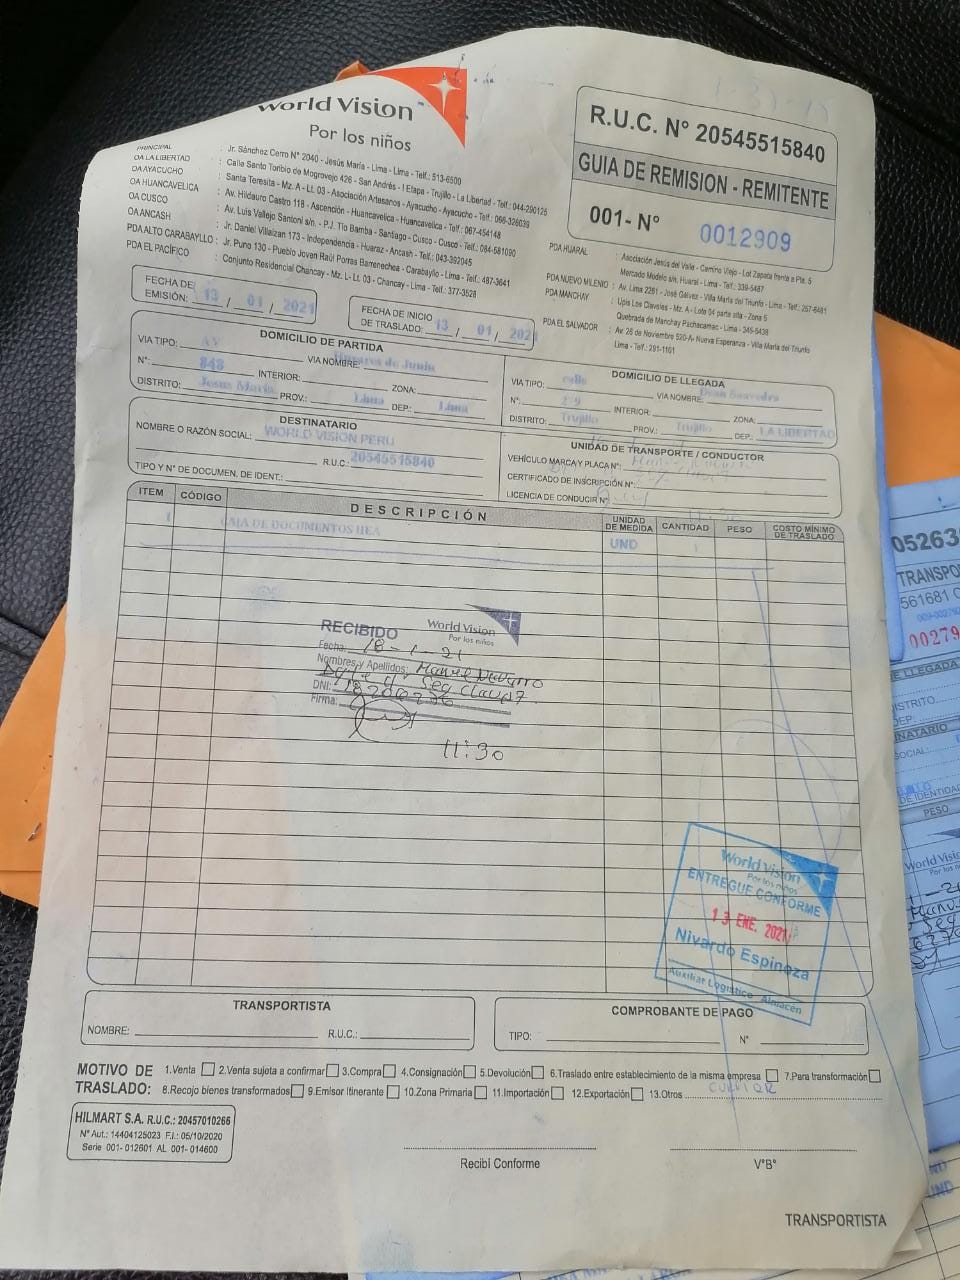 World Vision
Por los niños
R.U.C. N° 20545515840
GUIA DE REMISION - REMITENTE
001- N° 0012909
PRINCIPAL : Jr. Sánchez Cerro N° 2040 - Jesús María - Lima - Lima - Telf.: 513-6500
OA LA LIBERTAD : Calle Santo Toribio de Mogrovejo 426 - San Andrés - I Etapa - Trujillo - La Libertad - Telf.: 044-290125
OA AYACUCHO : Santa Teresita - Mz. A - Lt. 03 - Asociación Artesanos - Ayacucho - Ayacucho - Telf.: 066-326039
OA HUANCAVELICA : Av. Hildauro Castro 118 - Ascención - Huancavelica - Huancavelica - Telf.: 067-454148
OA CUSCO : Av. Luis Vallejo Santoni s/n. - P.J. Tio Bamba - Santiago - Cusco - Cusco - Telf.: 084-581090
OA ANCASH : Jr. Daniel Villaizan 173 - Independencia - Huaraz - Ancash - Telf.: 043-392045
PDA ALTO CARABAYLLO : Jr. Puno 130 - Pueblo Joven Raúl Porras Barrenechea - Carabayllo - Lima - Telf.: 487-3641
PDA EL PACÍFICO : Conjunto Residencial Chancay - Mz. L - Lt. 03 - Chancay - Lima - Telf.: 377-3528
PDA HUARAL : Asociación Jesús del Valle - Camino Viejo - Lot Zapata frente a Pte. 5
Mercado Modelo s/n. Huaral - Lima - Telf.: 339-5487
PDA NUEVO MILENIO : Av. Lima 2261 - José Gálvez - Villa María del Triunfo - Lima - Telf.: 257-6481
PDA MANCHAY : Upis Los Claveles - Mz. A - Lote 04 parte alta - Zona 5
Quebrada de Manchay Pachacamac - Lima - 345-5438
PDA EL SALVADOR : Av. 26 de Noviembre 520-A- Nueva Esperanza - Villa María del Triunfo
Lima - Telf.: 291-1101
FECHA DE EMISIÓN: 13 / 01 / 2021
FECHA DE INICIO DE TRASLADO: 13 / 01 / 2021
DOMICILIO DE PARTIDA
VIA TIPO: AV VIA NOMBRE: Husares de Junin
N°: 848 INTERIOR: ZONA:
DISTRITO: Jesus Maria PROV.: Lima DEP.: Lima
DOMICILIO DE LLEGADA
VIA TIPO: calle VIA NOMBRE: Dean Saavedra
N°: 279 INTERIOR: ZONA:
DISTRITO: Trujillo PROV.: Trujillo DEP.: LA LIBERTAD
DESTINATARIO
NOMBRE O RAZÓN SOCIAL: WORLD VISION PERU
R.U.C.: 20545515840
TIPO Y N° DE DOCUMEN. DE IDENT.:
UNIDAD DE TRANSPORTE / CONDUCTOR
VEHÍCULO MARCA Y PLACA N°:
CERTIFICADO DE INSCRIPCIÓN N°:
LICENCIA DE CONDUCIR N°
ITEM CÓDIGO DESCRIPCIÓN UNIDAD DE MEDIDA CANTIDAD PESO COSTO MÍNIMO DE TRASLADO
1 CAJA DE DOCUMENTOS HEA UND 1
World Vision
Por los niños
RECIBIDO
Fecha: 18-1-21
Nombres y Apellidos: Manuel Navarro
DNI: 18206276
Firma:
11:30
World Vision
Por los niños
ENTREGUE CONFORME
13 ENE. 2021
Nivardo Espinoza
Auxiliar Logístico Almacén
TRANSPORTISTA
NOMBRE: R.U.C.:
COMPROBANTE DE PAGO
TIPO: N°
MOTIVO DE TRASLADO: 1.Venta 2.Venta sujeta a confirmar 3.Compra 4.Consignación 5.Devolución 6.Traslado entre establecimiento de la misma empresa 7.Para transformación
8.Recojo bienes transformados 9.Emisor Itinerante 10.Zona Primaria 11.Importación 12.Exportación 13.Otros
HILMART S.A. R.U.C.: 20457010266
N° Aut.: 14404125023 F.I.: 05/10/2020
Serie 001- 012601 AL 001- 014600
Recibí Conforme
V°B°
TRANSPORTISTA
05263
TRANSPO
561681
00279
E LLEGADA
DISTRITO
DEP.:
NATARIO
SOCIAL:
DE IDENTIDAD
PESO
World Vision